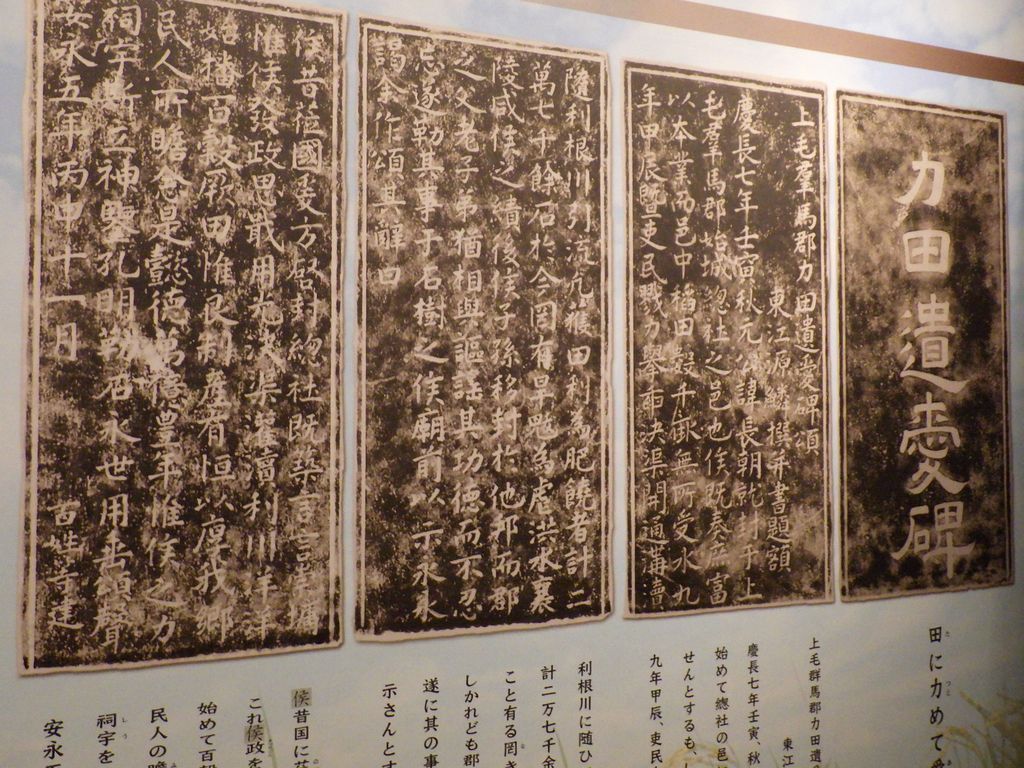 力田遺愛碑
上毛羣馬郡力田遺愛碑頌
東江源鱗撰并書題額
慶長七年壬寅秋元公諱長朝就封于上
毛羣馬郡始城總社之邑也侯既奏庶富
以本業而邑中稻田數千畝無所受水九
年甲辰暨吏民戮力擧鍤決渠開通溝瀆
隨利根川引流凡獲田利為肥饒者計二
萬七千餘石於今罔有旱魃為虐洪水襄
陵咸侯之績後侯子孫移封於他邦而郡
之父老子弟猶相與謳謡其功德而不忍
忘遂勒其事于石樹之侯廟前以示永永
謁余作頌其辭曰
侯昔莅國受方啓封總社既築言言崇墉
惟侯發政思戢用光浚渠灌瀆利川洋洋
始播百穀厥田惟良制產有恒以厚我鄉
民人所瞻念是懿德萬億豐年惟侯之力
祠宇斯立神鑒孔明勒石永世用垂頌聲
安永五年丙申十一月　百姓等建
田に力めて愛
上毛群馬郡力田遺
東江
慶長七年壬寅、秋
始めて總社の邑
せんとするも、
九年甲辰、吏民
利根川に随ひ
計二万七千余
こと有る罔き
しかれども郡
遂に其の事
示さんとす
侯昔国に莅
これ侯政を
始めて百穀
民人の瞻
祠宇を
安永五